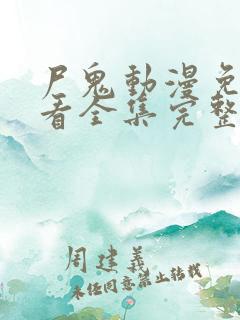 尸鬼動漫免
看全集完整
周建義
未经同意禁止转载